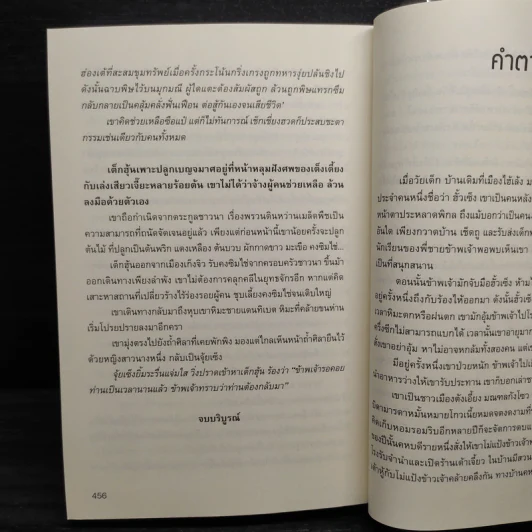 ฮ่องเต้ที่สะสมขุมทรัพย์เมื่อครั้งกระโน้นกริ่งเกรงถูกทหารงุ่ยปล้นชิงไป
ดังนั้นฉาบพิษไว้บนมุกมณี ผู้ใดแตะต้องสัมผัสถูก ล้วนถูกพิษแทรกซึม
กลับกลายเป็นคลุ้มคลั่งฟั่นเฟือน ต่อสู้กันเองจนเสียชีวิต'
เขาคิดช่วยเหลือซือแป๋ แต่ก็ไม่ทันการณ์ เช็กเชี่ยงฮวดก็ประสบชะตา
กรรมเช่นเดียวกับคนทั้งหมด
เต็กฮุ้นเพาะปลูกเบญจมาศอยู่ที่หน้าหลุมฝังศพของเต็งเตี้ยง
กับเล่งเสียวเจี๊ยะหลายร้อยต้น เขาไม่ได้ว่าจ้างผู้คนช่วยเหลือ ล้วน
ลงมือด้วยตัวเอง
เขาถือกำเนิดจากตระกูลชาวนา เรื่องพรวนดินหว่านเมล็ดพืชเป็น
ความสามารถที่ถนัดจัดเจนอยู่แล้ว เพียงแต่ก่อนหน้านี้เขาน้อยครั้งจะปลูก
ต้นไม้ ที่ปลูกเป็นต้นพริก แตงเหลือง ต้นบวบ ผักกาดขาว มะเขือ คงซิมไช่...
เต็กฮุ้นออกจากเมืองเก็งจิว รับคงซิมไช่จากครอบครัวชาวนา ขึ้นม้า
ออกเดินทางเพียงลำพัง เขาไม่ต้องการคลุกคลีในยุทธจักรอีก หากแต่คิด
เสาะหาสถานที่เปลี่ยวร้างไร้ร่องรอยผู้คน ชุบเลี้ยงคงซิมไช่จนเติบใหญ่
เขาเดินทางกลับมาถึงหุบเขาหิมะชายแดนทิเบต หิมะที่คล้ายขนห่าน
เริ่มโปรยปรายลงมาอีกครา
เขามุ่งตรงไปยังถ้ำศิลาที่เคยพักพิง มองแต่ไกลเห็นหน้าถ้ำศิลายืนไว้
ด้วยหญิงสาวนางหนึ่ง กลับเป็นจุ้ยเซ็ง
จุ้ยเซ็งยิ้มระรื่นแจ่มใส วิ่งปราดเข้าหาเต็กฮุ้น ร้องว่า "ข้าพเจ้ารอคอย
ท่านเป็นเวลานานแล้ว ข้าพเจ้าทราบว่าท่านต้องกลับมา"
จบบริบูรณ์
456
คำตา
เมื่อวัยเด็ก บ้านเดิมที่เมืองไฮ้เล้ง ม
ประจำคนหนึ่งชื่อว่า ฮั้วเซ็ง เขาเป็นคนหลัง
หน้าตาประหลาดพิกล ถึงแม้บอกว่าเป็นคน
อันใด เพียงกวาดบ้าน เช็ดถู และรับส่งเด็กๆ
นักเรียนของพี่ชายข้าพเจ้าพอพบเห็นเขา
เป็นที่สนุกสนาน
ตอนนั้นข้าพเจ้ามักจับมือฮั้วเซ็ง ห้าม
อยู่ครั้งหนึ่งถึงกับร้องไห้ออกมา ดังนั้นฮั้วเซ็
เวลาหิมะตกหรือฝนตก เขามักอุ้มข้าพเจ้าไปโร
ครึ่งซีกไม่สามารถแบกได้ เวลานั้นเขาอายุมาก
สั่งเขาอย่าอุ้ม หาไม่อาจหกล้มทั้งสองคน แต่เ
มีอยู่ครั้งหนึ่งเขาป่วยหนัก ข้าพเจ้าไป
นำอาหารว่างให้เขารับประทาน เขาก็บอกเล่าช
เขาเป็นชาวเมืองตังเอี้ยง มณฑลกังโซว